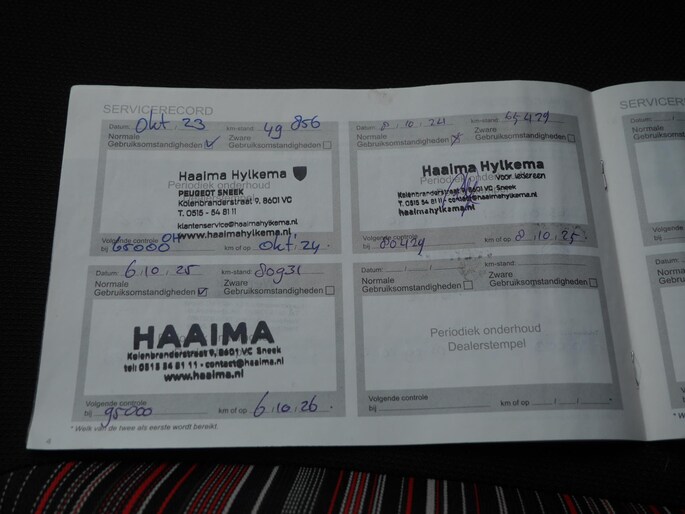 SERVICERECORD
Datum: Okt. 23 km-stand: 49 856
Normale Gebruiksomstandigheden
Zware Gebruiksomstandigheden
Periodiek onderhoud
Haaima Hylkema
PEUGEOT SNEEK
Kolenbranderstraat 9, 8601 VC
T. 0515 - 54 81 11
klantenservice@haaimahylkema.nl
www.haaimahylkema.nl
Volgende controle
bij 65000 km of op Okt. 24
Datum: 8.10.24 km-stand: 65429
Normale Gebruiksomstandigheden
Zware Gebruiksomstandigheden
Haaima Hylkema
voor iedereen
Kolenbranderstraat 9, 8601 VC Sneek
T. 0515 - 54 81 11 - contact@haaimahylkema.nl
haaimahylkema.nl
Volgende controle
bij 80429 km of op 8.10.25
Datum: 6.10.25 km-stand: 80931
Normale Gebruiksomstandigheden
Zware Gebruiksomstandigheden
HAAIMA
Kolenbranderstraat 9, 8601 VC Sneek
tel: 0515 54 81 11 - contact@haaima.nl
www.haaima.nl
Volgende controle
bij 95000 km of op 6.10.26
Datum: / / km-stand:
Normale Gebruiksomstandigheden
Zware Gebruiksomstandigheden
Periodiek onderhoud
Dealerstempel
Volgende controle
bij km of op / /
* Welk van de twee als eerste wordt bereikt
4
SERVICER
Datum:
Normale
Gebruik
Volgende
bij
Datum:
Normale
Gebruik
Volgende
bij
* Welk